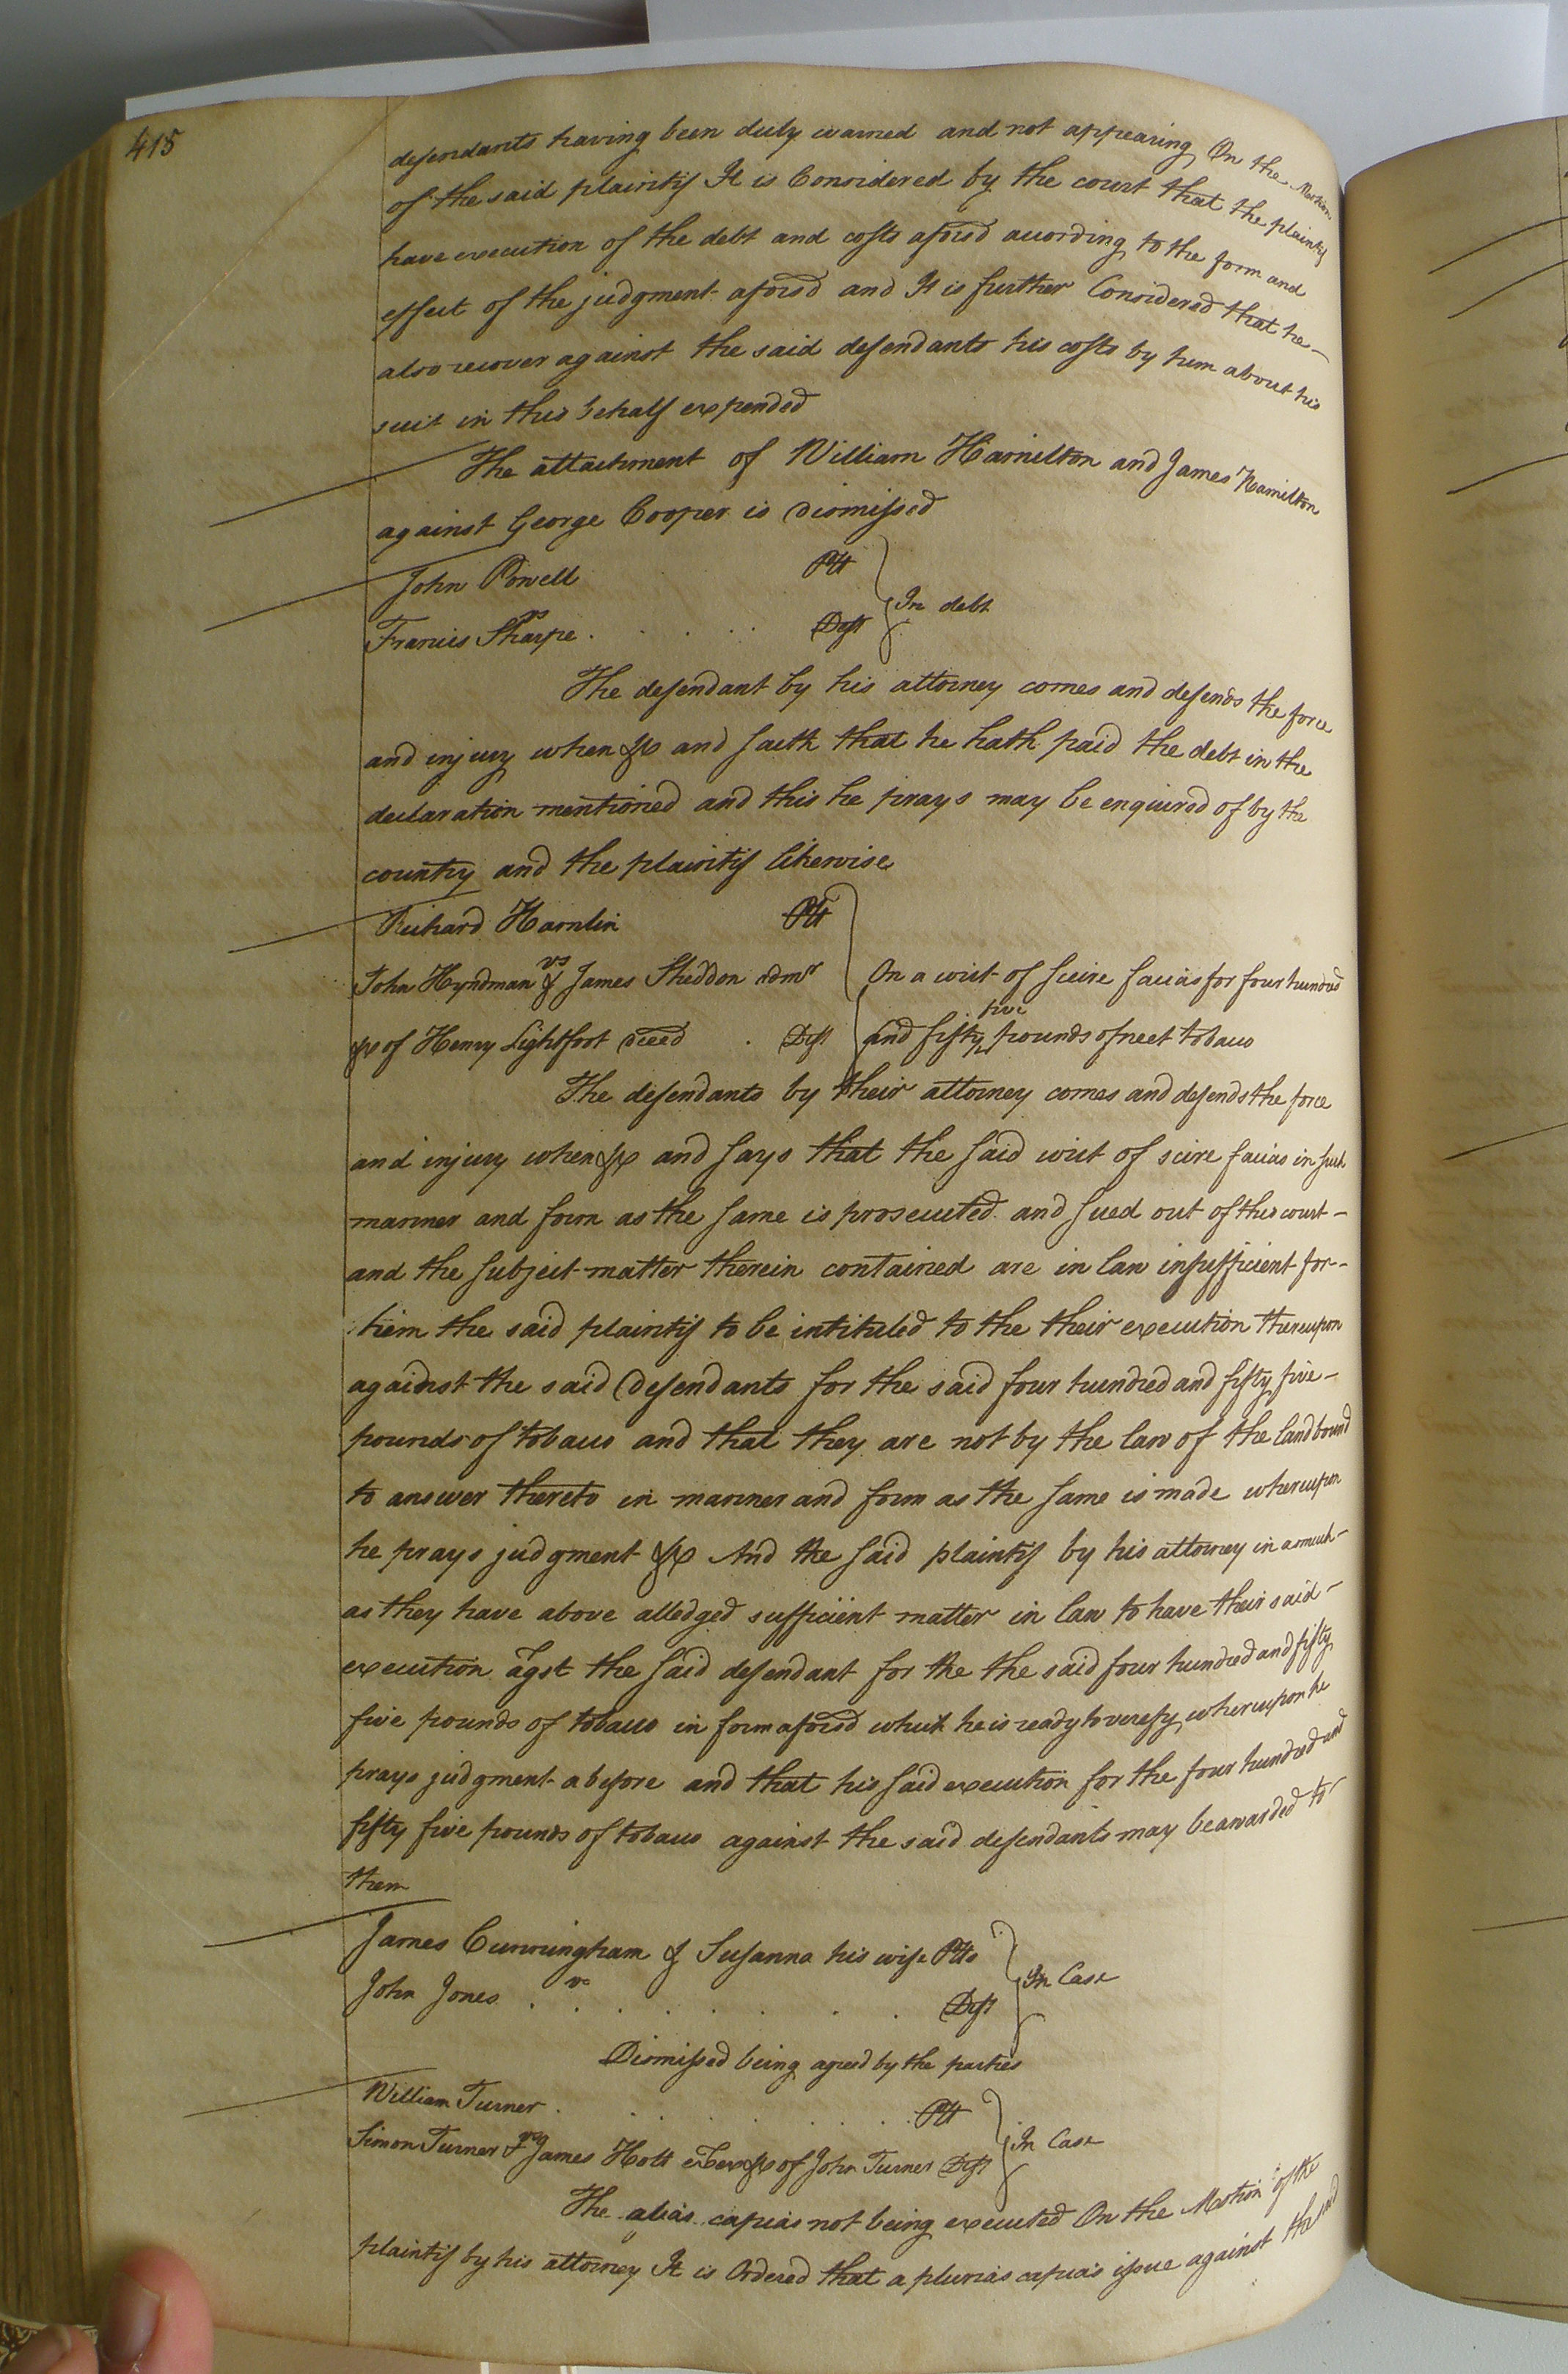 415
defendants having been duly warned and not appearing On the Motion
of the said plaintif It is Considered by the court that the plaintif
have execution of the debt and costs aforsd according to the form and
effect of the judgment aforsd and It is further Considered that he
also recover against the said defendants his costs by him about his
suit in this behalf expended
The attachment of William Hamilton and James Hamilton
against George Cooper is dismissed
John Powell Plt
vs In debt
Francis Sharpe Deft
The defendant by his attorney comes and defends the force
and injury when &c and saith that he hath paid the debt in the
declaration mentioned and this he prays may be enquired of by the
country and the plaintif likewise
Richard Hamlin Plt
vs
John Hyndman & James Sheddon admr On a writ of scire facias for four hundred
five
&c of Henry Lightfoot deced Deft and fifty pounds of neet tobacco
The defendants by their attorney comes and defends the force
and injury when &c and says that the said writ of scire facias in such
manner and form as the same is prosecuted and sued out of this court
and the subject matter therein contained are in law insufficient for
him the said plaintif to be intituled to the their execution thereupon
against the said defendants for the said four hundred and fifty five
pounds of tobacco and that they are not by the law of the land bound
to answer thereto in manner and form as the same is made whereupon
he prays judgment &c And the said plaintif by his attorney in asmuch
as they have above alledged sufficient matter in law to have their said
execution agst the said defendant for the the said four hundred and fifty
five pounds of tobacco in form aforsd which he is ready to verefy whereupon he
prays judgment a before and that his said execution for the four hundred and
fifty five pounds of tobacco against the said defendants may be awarded to
them
James Cunningham & Susanna his wife Plts
vs In Case
John Jones Deft
Dismissed being agreed by the parties
William Turner Plt
vs In Case
Simon Turner & James Holt &c of John Turner Deft
The alias capias not being executed On the Motion of the
plaintif by his attorney It is Ordered that a plurias capias issue against the said